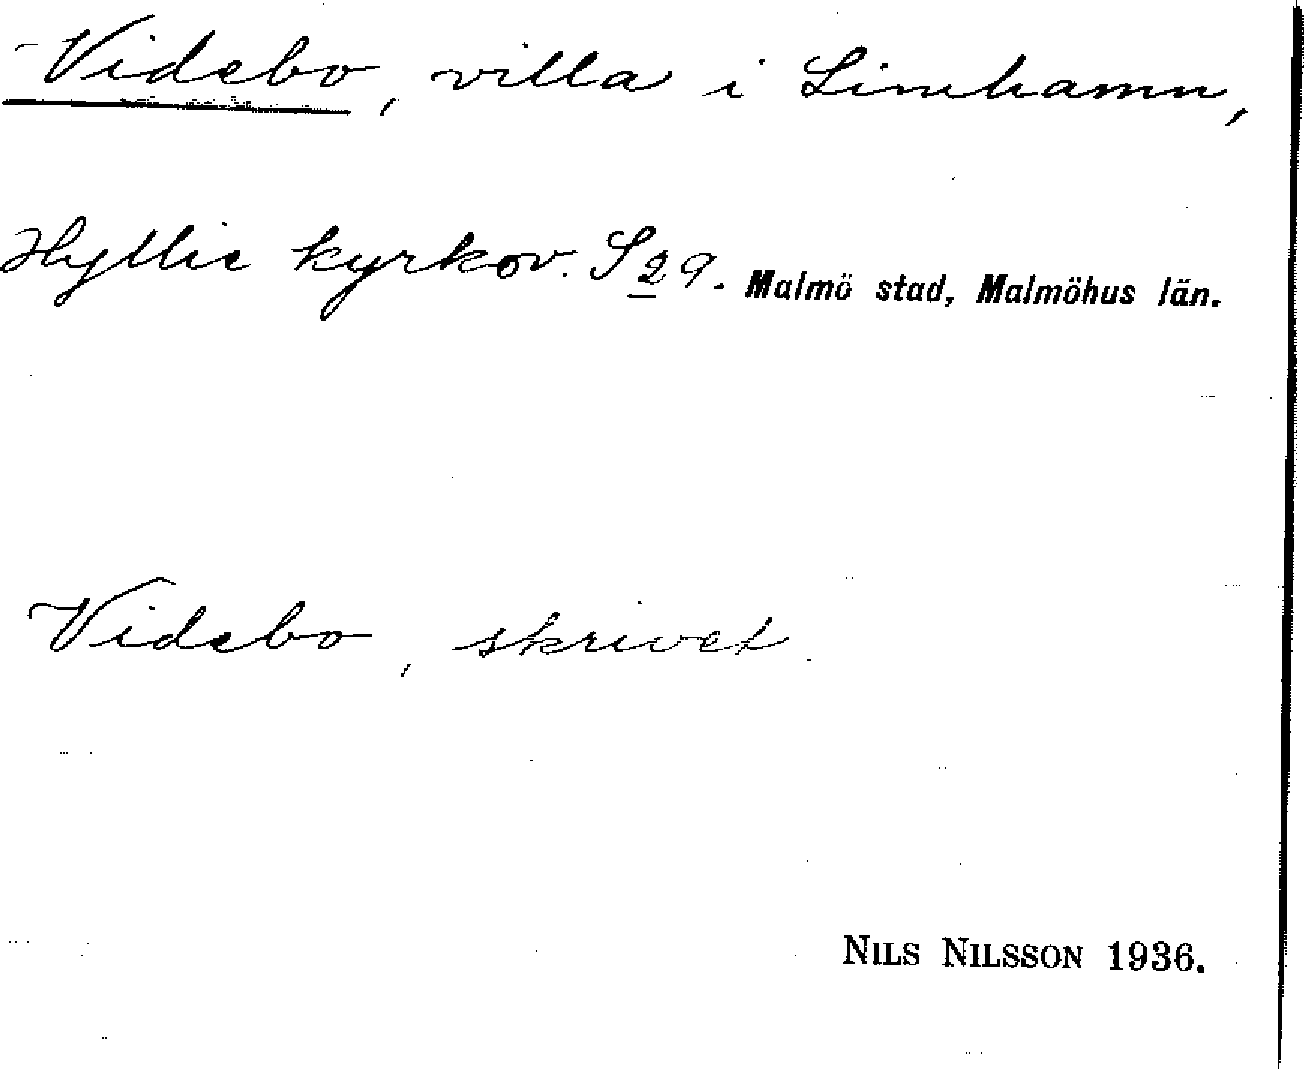 Videbo, villa i Limhamn,
Hyllie kyrkov. S 29. Malmö stad, Malmöhus län.
Videbo, skrivet.
NILS NILSSON 1936.